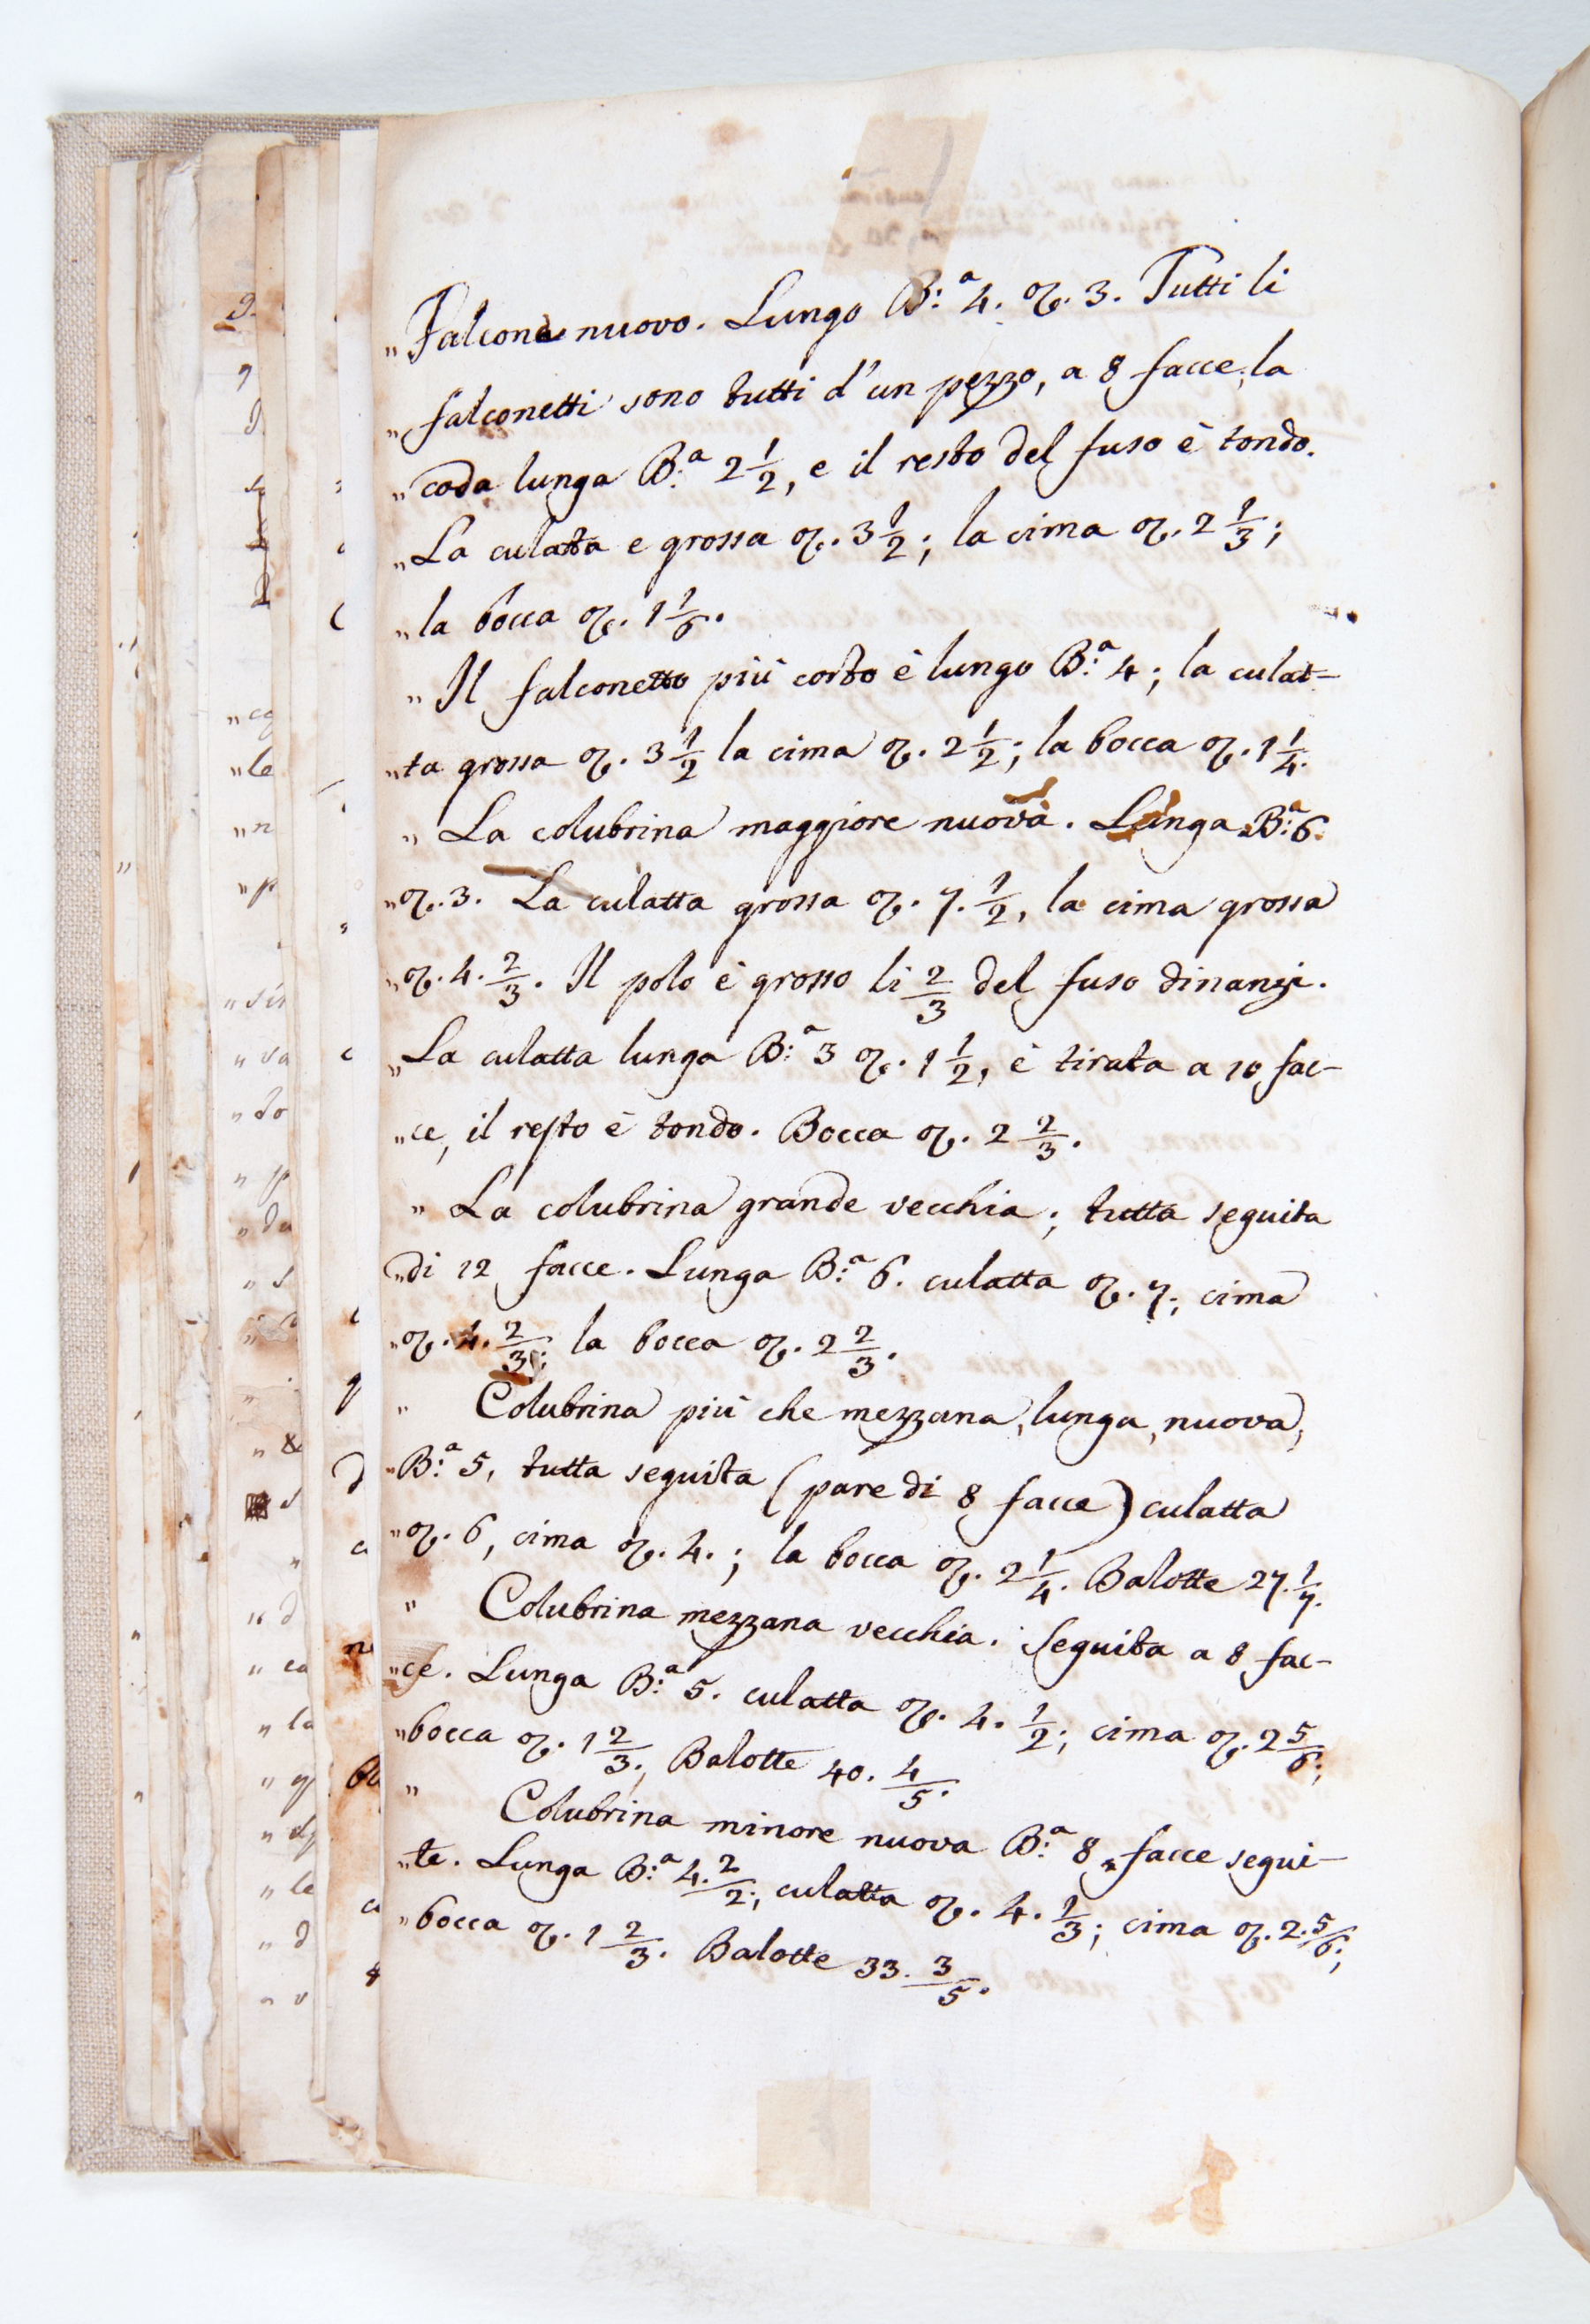 „Falcone nuovo. Lungo B:ª 4. oz. 3. Tutti li
„falconetti sono tutti d'un pezzo, a 8 facce; la
„coda lunga B:ª 2 1/2, e il resto del fuso è tondo.
„La culatta e grossa oz. 3 1/2; la cima oz. 2 1/3;
„la bocca oz. 1 1/6.
„Il falconetto più corto è lungo B:ª 4; la culat-
„ta grossa oz. 3 1/2 la cima oz. 2 1/2; la bocca oz. 1 1/4.
„La colubrina maggiore nuova. Lunga B:ª 6.
„oz. 3. La culatta grossa oz. 7. 1/2, la cima grossa
„oz. 4. 2/3. Il polo è grosso li 2/3 del fuso dinanzi.
„La culatta lunga B:ª 3 oz. 1 1/2, è tirata a 10 fac-
„ce, il resto è tondo. Bocca oz. 2 2/3.
„La colubrina grande vecchia; tutta seguita
„di 12 facce. Lunga B:ª 6. culatta oz. 7; cima
„oz. 4. 2/3; la bocca oz. 2 2/3.
„ Colubrina più che mezzana, lunga, nuova,
„B:ª 5, tutta seguita (pare di 8 facce) culatta
„oz. 6, cima oz. 4.; la bocca oz. 2 1/4. Balotte 27. 1/7.
„ Colubrina mezzana vecchia. Seguita a 8 fac-
„ce. Lunga B:ª 5. culatta oz. 4. 1/2; cima oz. 2 5/6;
„bocca oz. 1 2/3; Balotte 40. 4/5.
„ Colubrina minore nuova B:ª 8 facce segui-
„te. Lunga B:ª 4. 2/2; culatta oz. 4. 1/3; cima oz. 2. 5/6;
„bocca oz. 1 2/3. Balotte 33. 3/5.